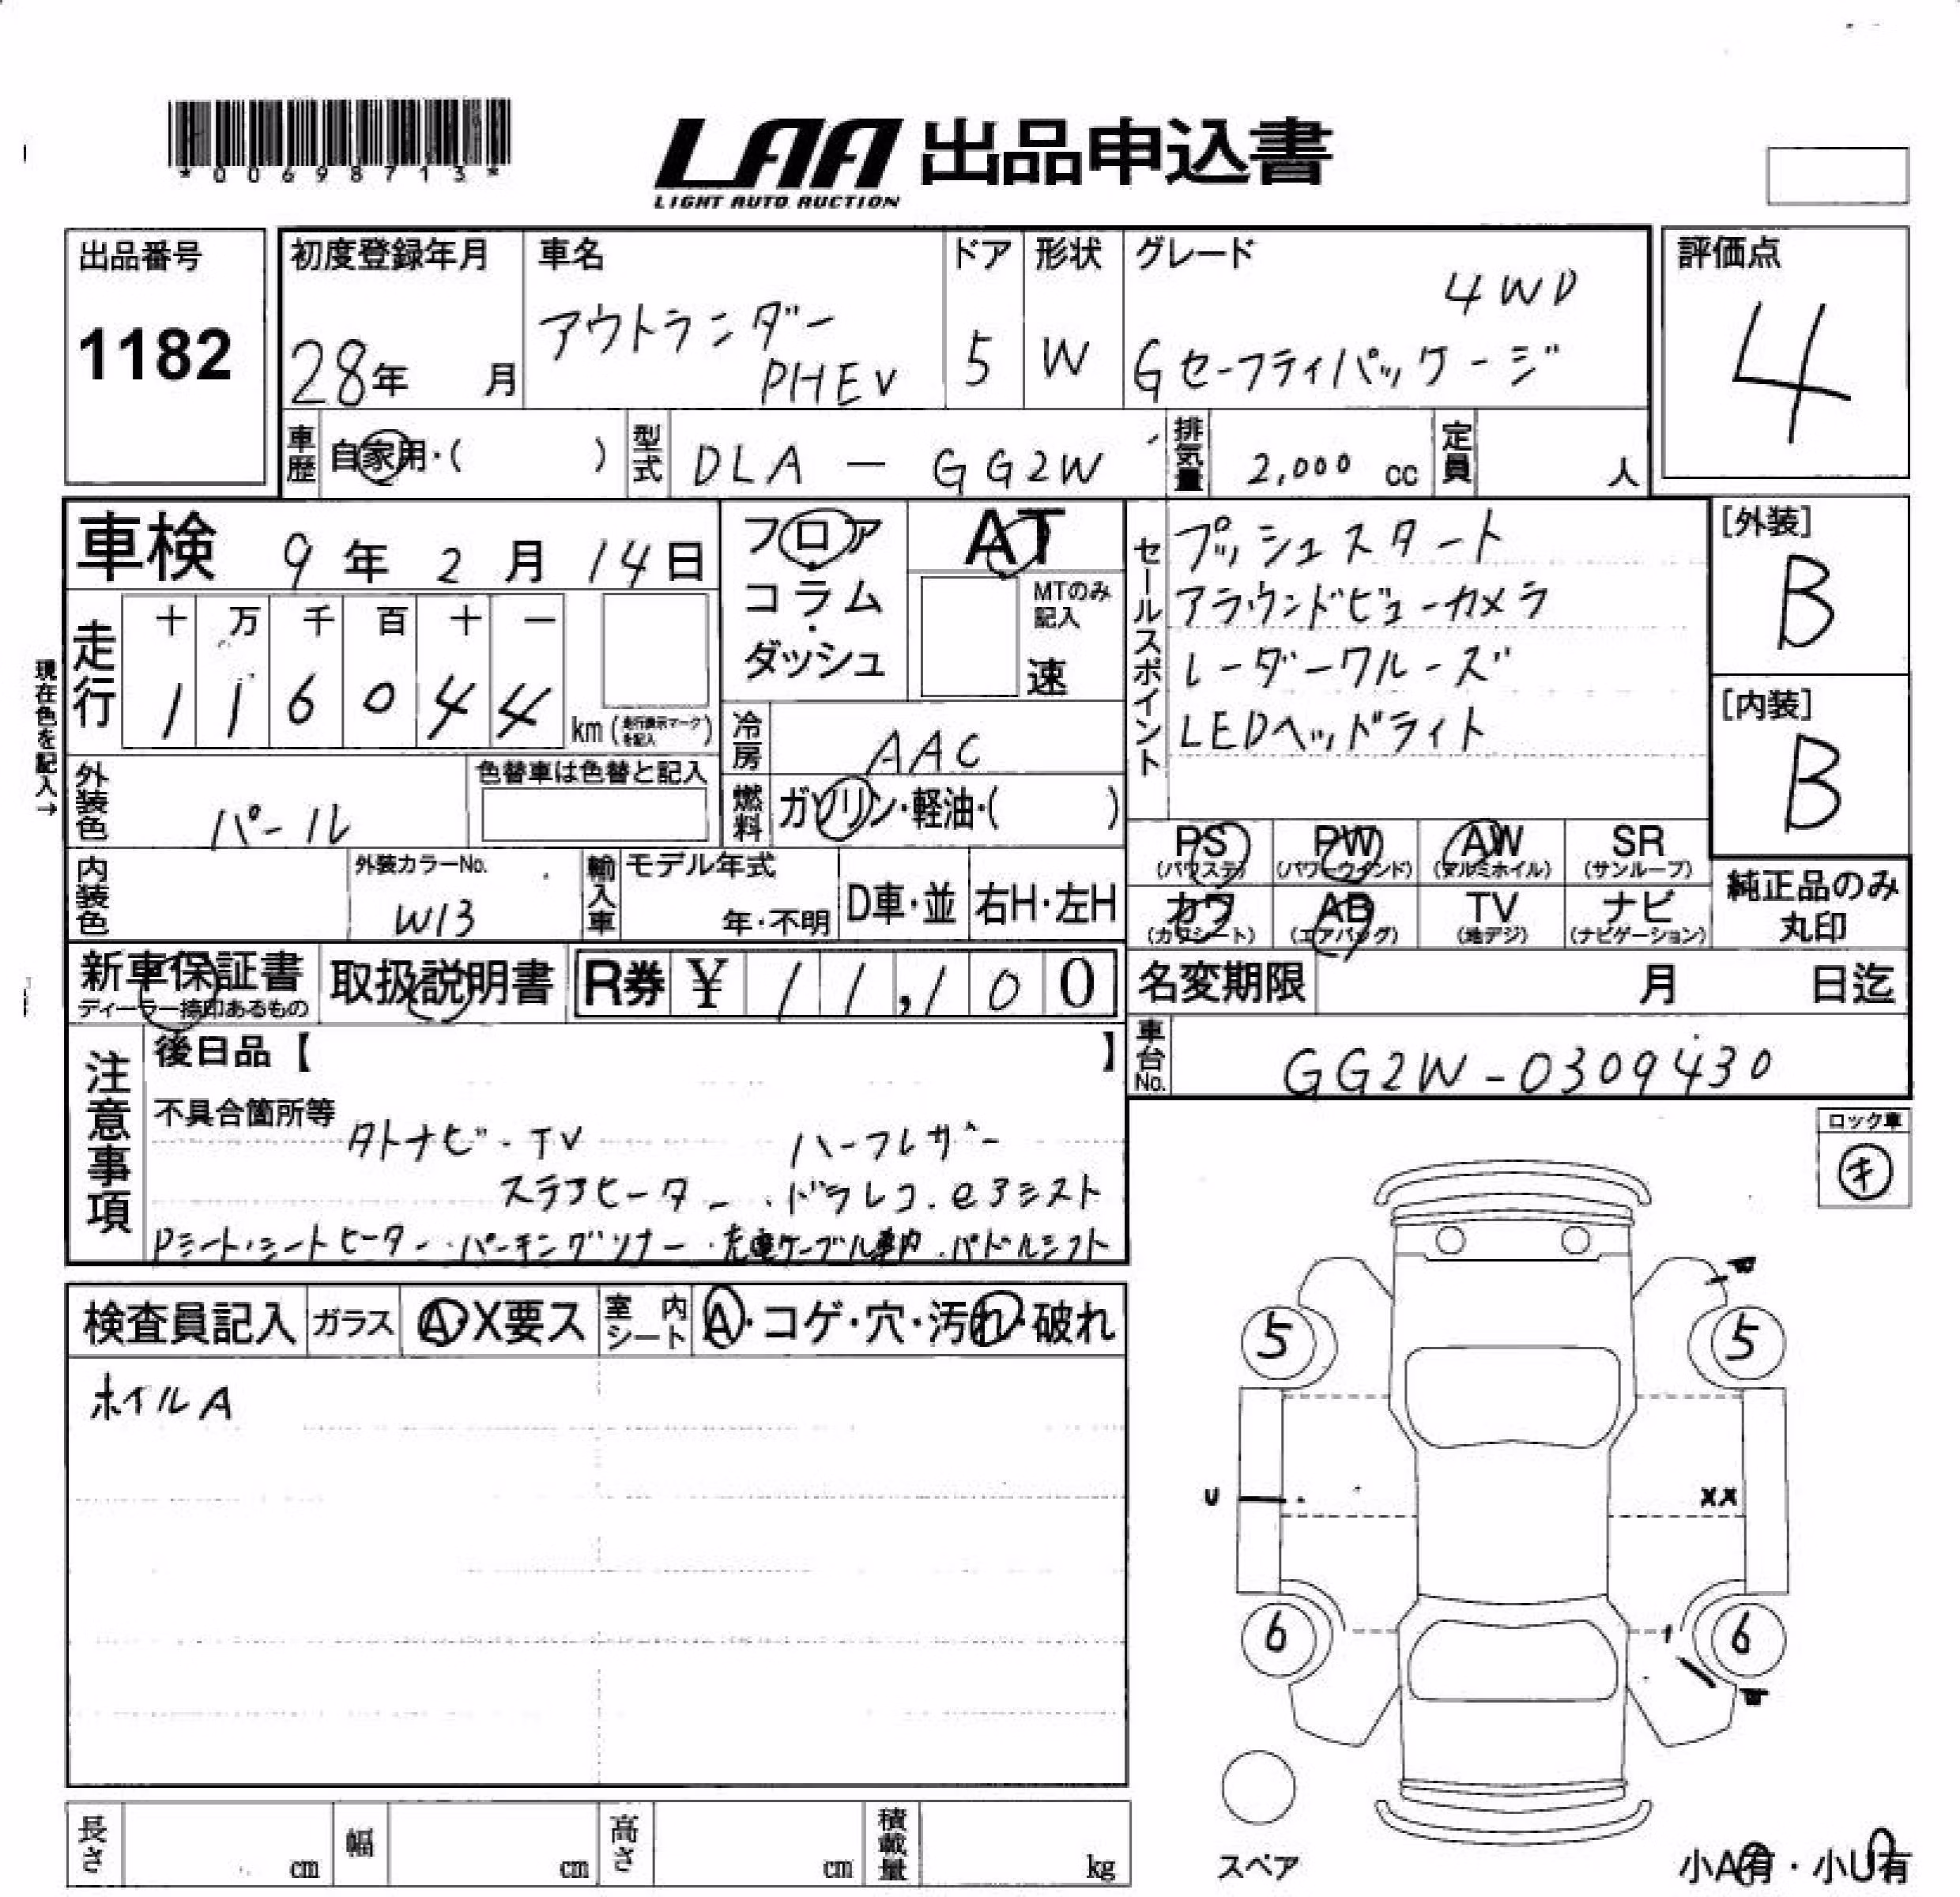 *00698713*
LAA 出品申込書
LIGHT AUTO AUCTION
出品番号
1182
初度登録年月
28年 月
車名
アウトランダー
PHEV
ドア
5
形状
W
グレード
4WD
Gセーフティパッケージ
評価点
4
車歴
自家用・( )
型式
DLA - GG2W
排気量
2,000 cc
定員
人
車検 9年 2月 14日
フロア
・
コラム
・
ダッシュ
AT
MTのみ
記入
速
セールスポイント
プッシュスタート
アラウンドビューカメラ
レーダークルーズ
LEDヘッドライト
[外装]
B
[内装]
B
現在色を記入→
走行
十 万 千 百 十 一
1 1 6 0 4 4
km (走行表示マークを記入)
冷房
AAC
外装色
パール
色替車は色替と記入
燃料
ガソリン・軽油・( )
PS
(パワステ)
PW
(パワーウインド)
AW
(アルミホイル)
SR
(サンルーフ)
カワ
(カワシート)
AB
(エアバッグ)
TV
(地デジ)
ナビ
(ナビゲーション)
純正品のみ
丸印
内装色
外装カラーNo.
W13
輸入車
モデル年式
年・不明
D車・並
右H・左H
新車保証書
ディーラー捺印あるもの
取扱説明書
R券 ¥ 11,100
名変期限 月 日迄
車台No.
GG2W-0309430
注意事項
後日品【 】
不具合箇所等
タトナビ・TV ハーフレザー
ステアヒーター・ドラレコ・eアシスト
Pシート・シートヒーター・パーキングソナー・充電ケーブル車内・パドルシフト
ロック車
キ
検査員記入
ガラス
A・X要ス
室内シート
A・コゲ・穴・汚れ・破れ
ホイルA
W
5 5
U XX
6 6
W
スペア
小A有・小U有
長さ cm
幅 cm
高さ cm
積載量 kg